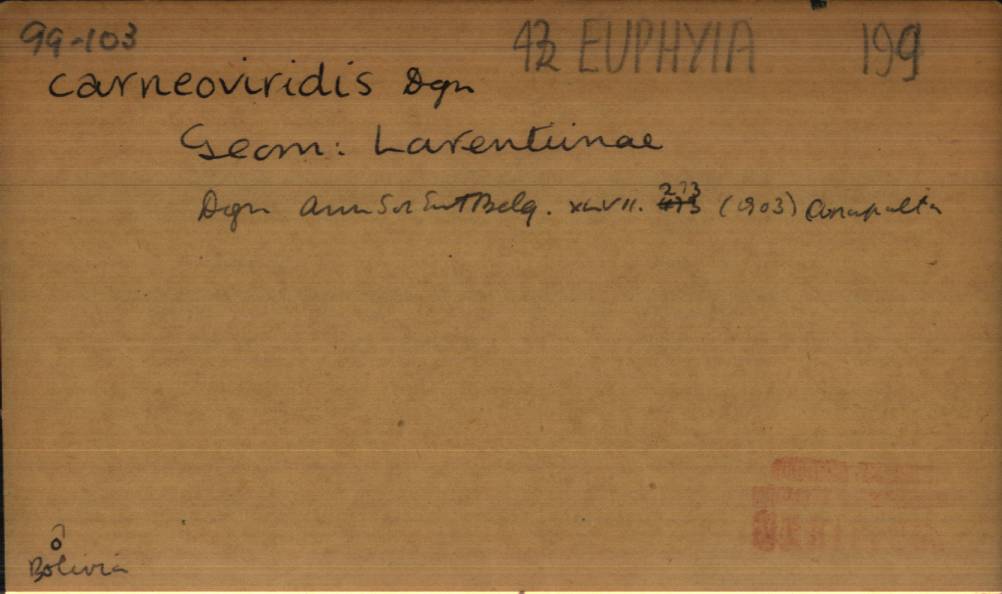 99-103 42 EUPHYIA 199
carneoviridis Dgn
Geom: Larentiinae
Dgn Ann Soc Ent Belg. XLVII. 273 (1903) Anapalta
Bolivia